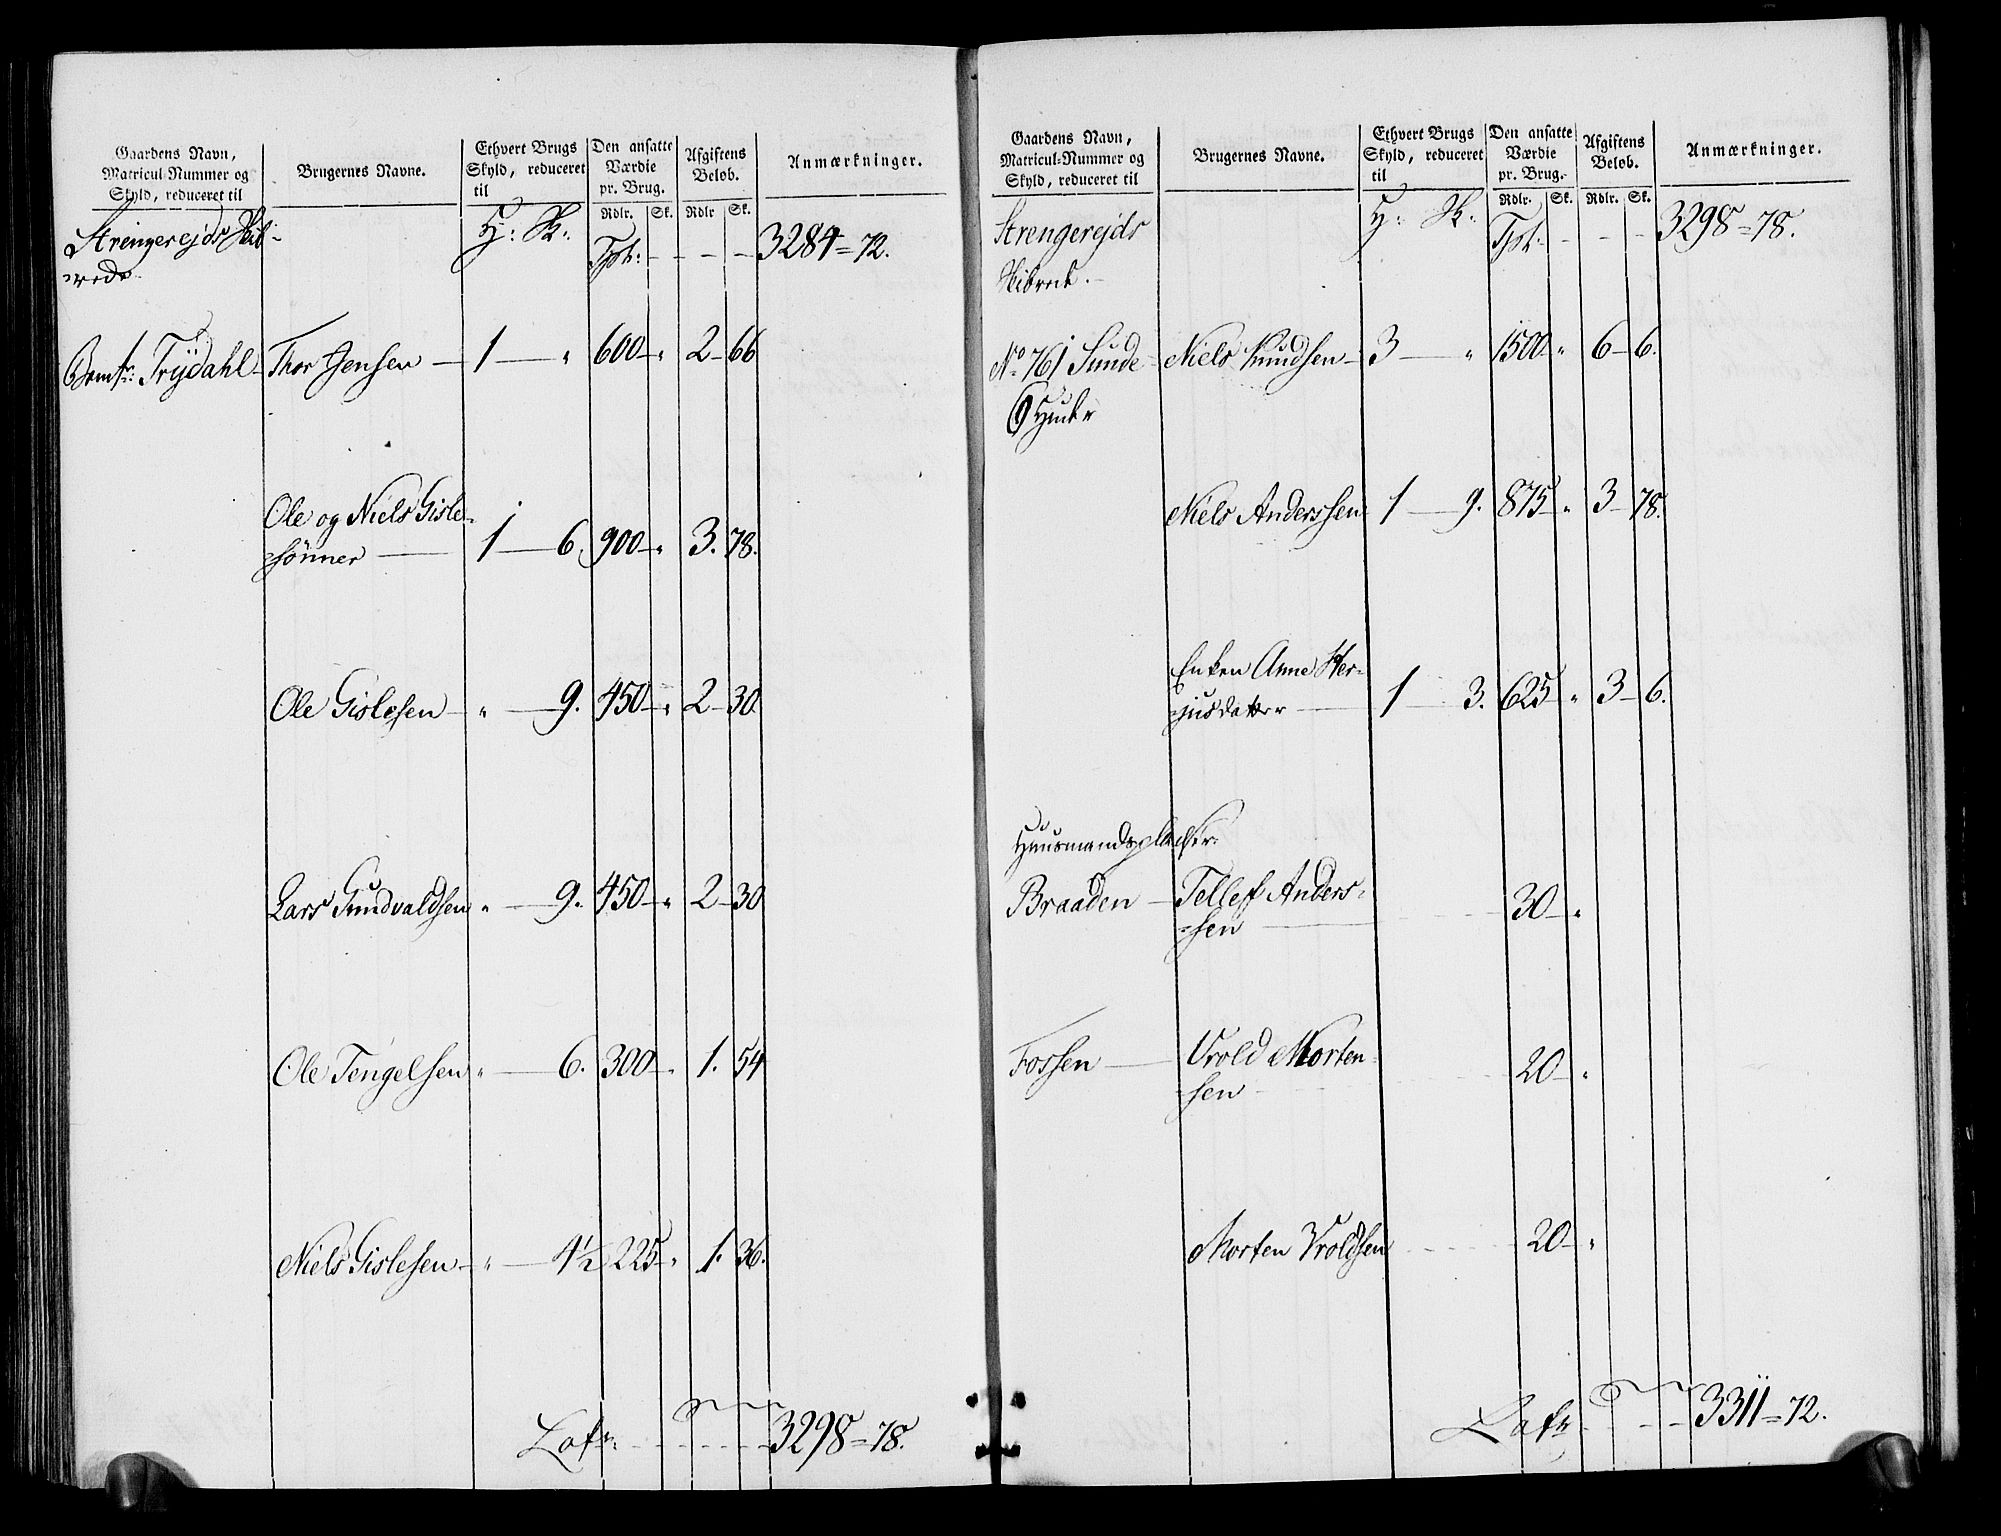 Gaardens Navn,
Matricul-Nummer og
Skyld, reduceret til
Brugernes Navne.
Ethvert Brugs
Skyld, reduceret
til
Den ansatte
Værdie
pr. Brug.
Afgiftens
Beløb.
Anmærkninger.
Rdlr. Sk. Rdlr Sk.
Strengerejds Skib-
rede.
H: Sk:
Tpt: - - - - 3284 = 72.
Trydahl - Thor Jensen - 1 - " 600 - " 2 - 66
Ole og Niels Gisle-
sönner - 1 - 6. 900 - " 3. 78.
Ole Gislesen - " - 9. 450 - " 2 - 30
Lars Gundvaldsen " - 9. 450 - " 2 - 30
Ole Tengelsen " - 6. 300 - " 1. 54
Niels Gislesen - " - 4½ 225 - " 1. 36.
Lats: - - - - - 3298 = 78.
Gaardens Navn,
Matricul-Nummer og
Skyld, reduceret til
Brugernes Navne.
Ethvert Brugs
Skyld, reduceret
til
Den ansatte
Værdie
pr. Brug.
Afgiftens
Beløb.
Anmærkninger.
Rdlr. Sk. Rdlr. Sk.
Strengerejds
Skibrede.
H: Sk:
Tpt: - - - 3298 = 78.
No 761 Sunde - Niels Knudsen - 3 - " 1500 - " 6 - 6.
6 Huder
Niels Anderssen 1 - 9. 875 - " 3 - 78.
Enken Anne Her-
jusdatter - 1 - 3. 625 - " 3 - 6.
Huusmandspladser:
Braaden - Tellef Anders-
sen - 30 - "
Fossen - Vrold Morten-
sen - 20 - "
Morten Vroldsen - 20 - "
Lats - - - 3311 = 72.